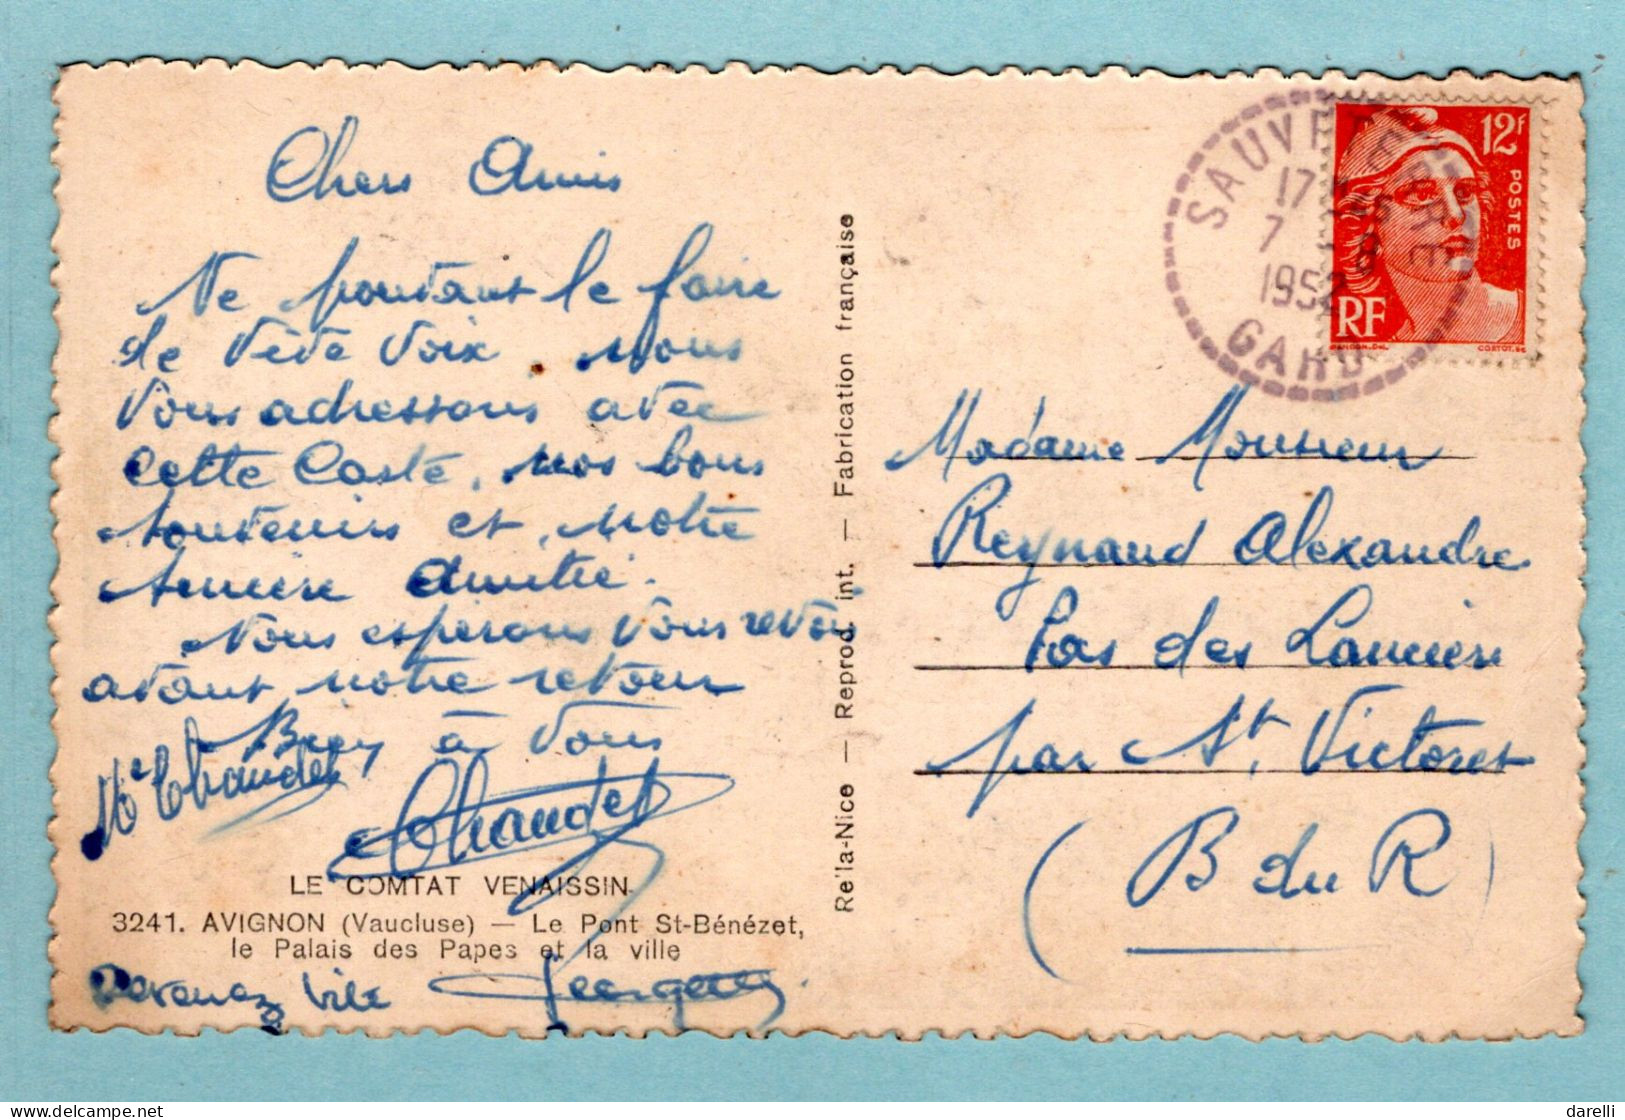 Chers Amis
Ne pouvant le faire
de vive voix, nous
vous adressons avec
cette Carte, nos bons
souvenirs et notre
sincère amitié.
Nous espérons vous revoir
avant notre retour
Bien à vous
Me Chaudet
Chaudet
LE COMTAT VENAISSIN
3241. AVIGNON (Vaucluse) — Le Pont St-Bénézet,
le Palais des Papes et la ville
Revenez vite
Re'la-Nice — Reprod. int. — Fabrication française
SAUVETERRE
17
7 -8
1952
GARD
12F
POSTES
RF
Madame Monsieur
Reynaud Alexandre
Pas des Lanciers
par St Victoret
(B du R)
darelli